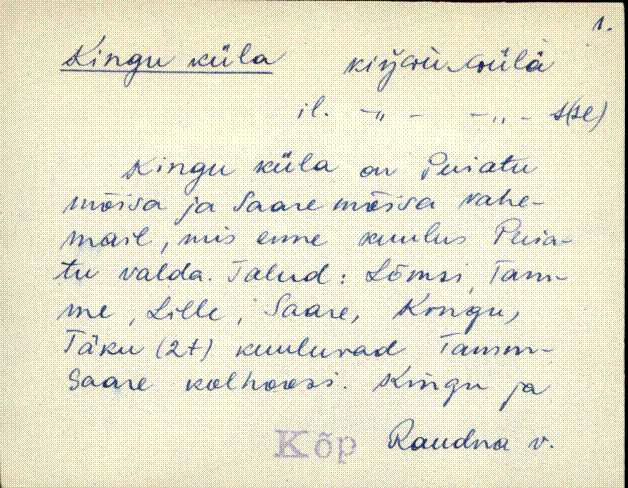 1.
Kingu küla
il. -„- -„- s(se)
Kingu küla on Puiatu
mõisa ja Saare mõisa vahe-
mail, mis enne kuulus Puia-
tu valda. Talud: Lõmsi, Tam-
me, Lille, Saare, Kongu,
Täku (2t) kuuluvad Tamm-
Saare kolhoosi. Kingu ja
Kõp Raudna v.